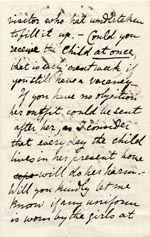 visitor who has undertaken
to fill it up. – Could you
receive the Child at once
that is early next week if
you still have a vacancy.
If you have no objection
her outfit could be sent
after her, as I consider
that every day the child
lives in her present home
will do her harm.
Will you kindly let me
know if any uniform
is worn by the girls at